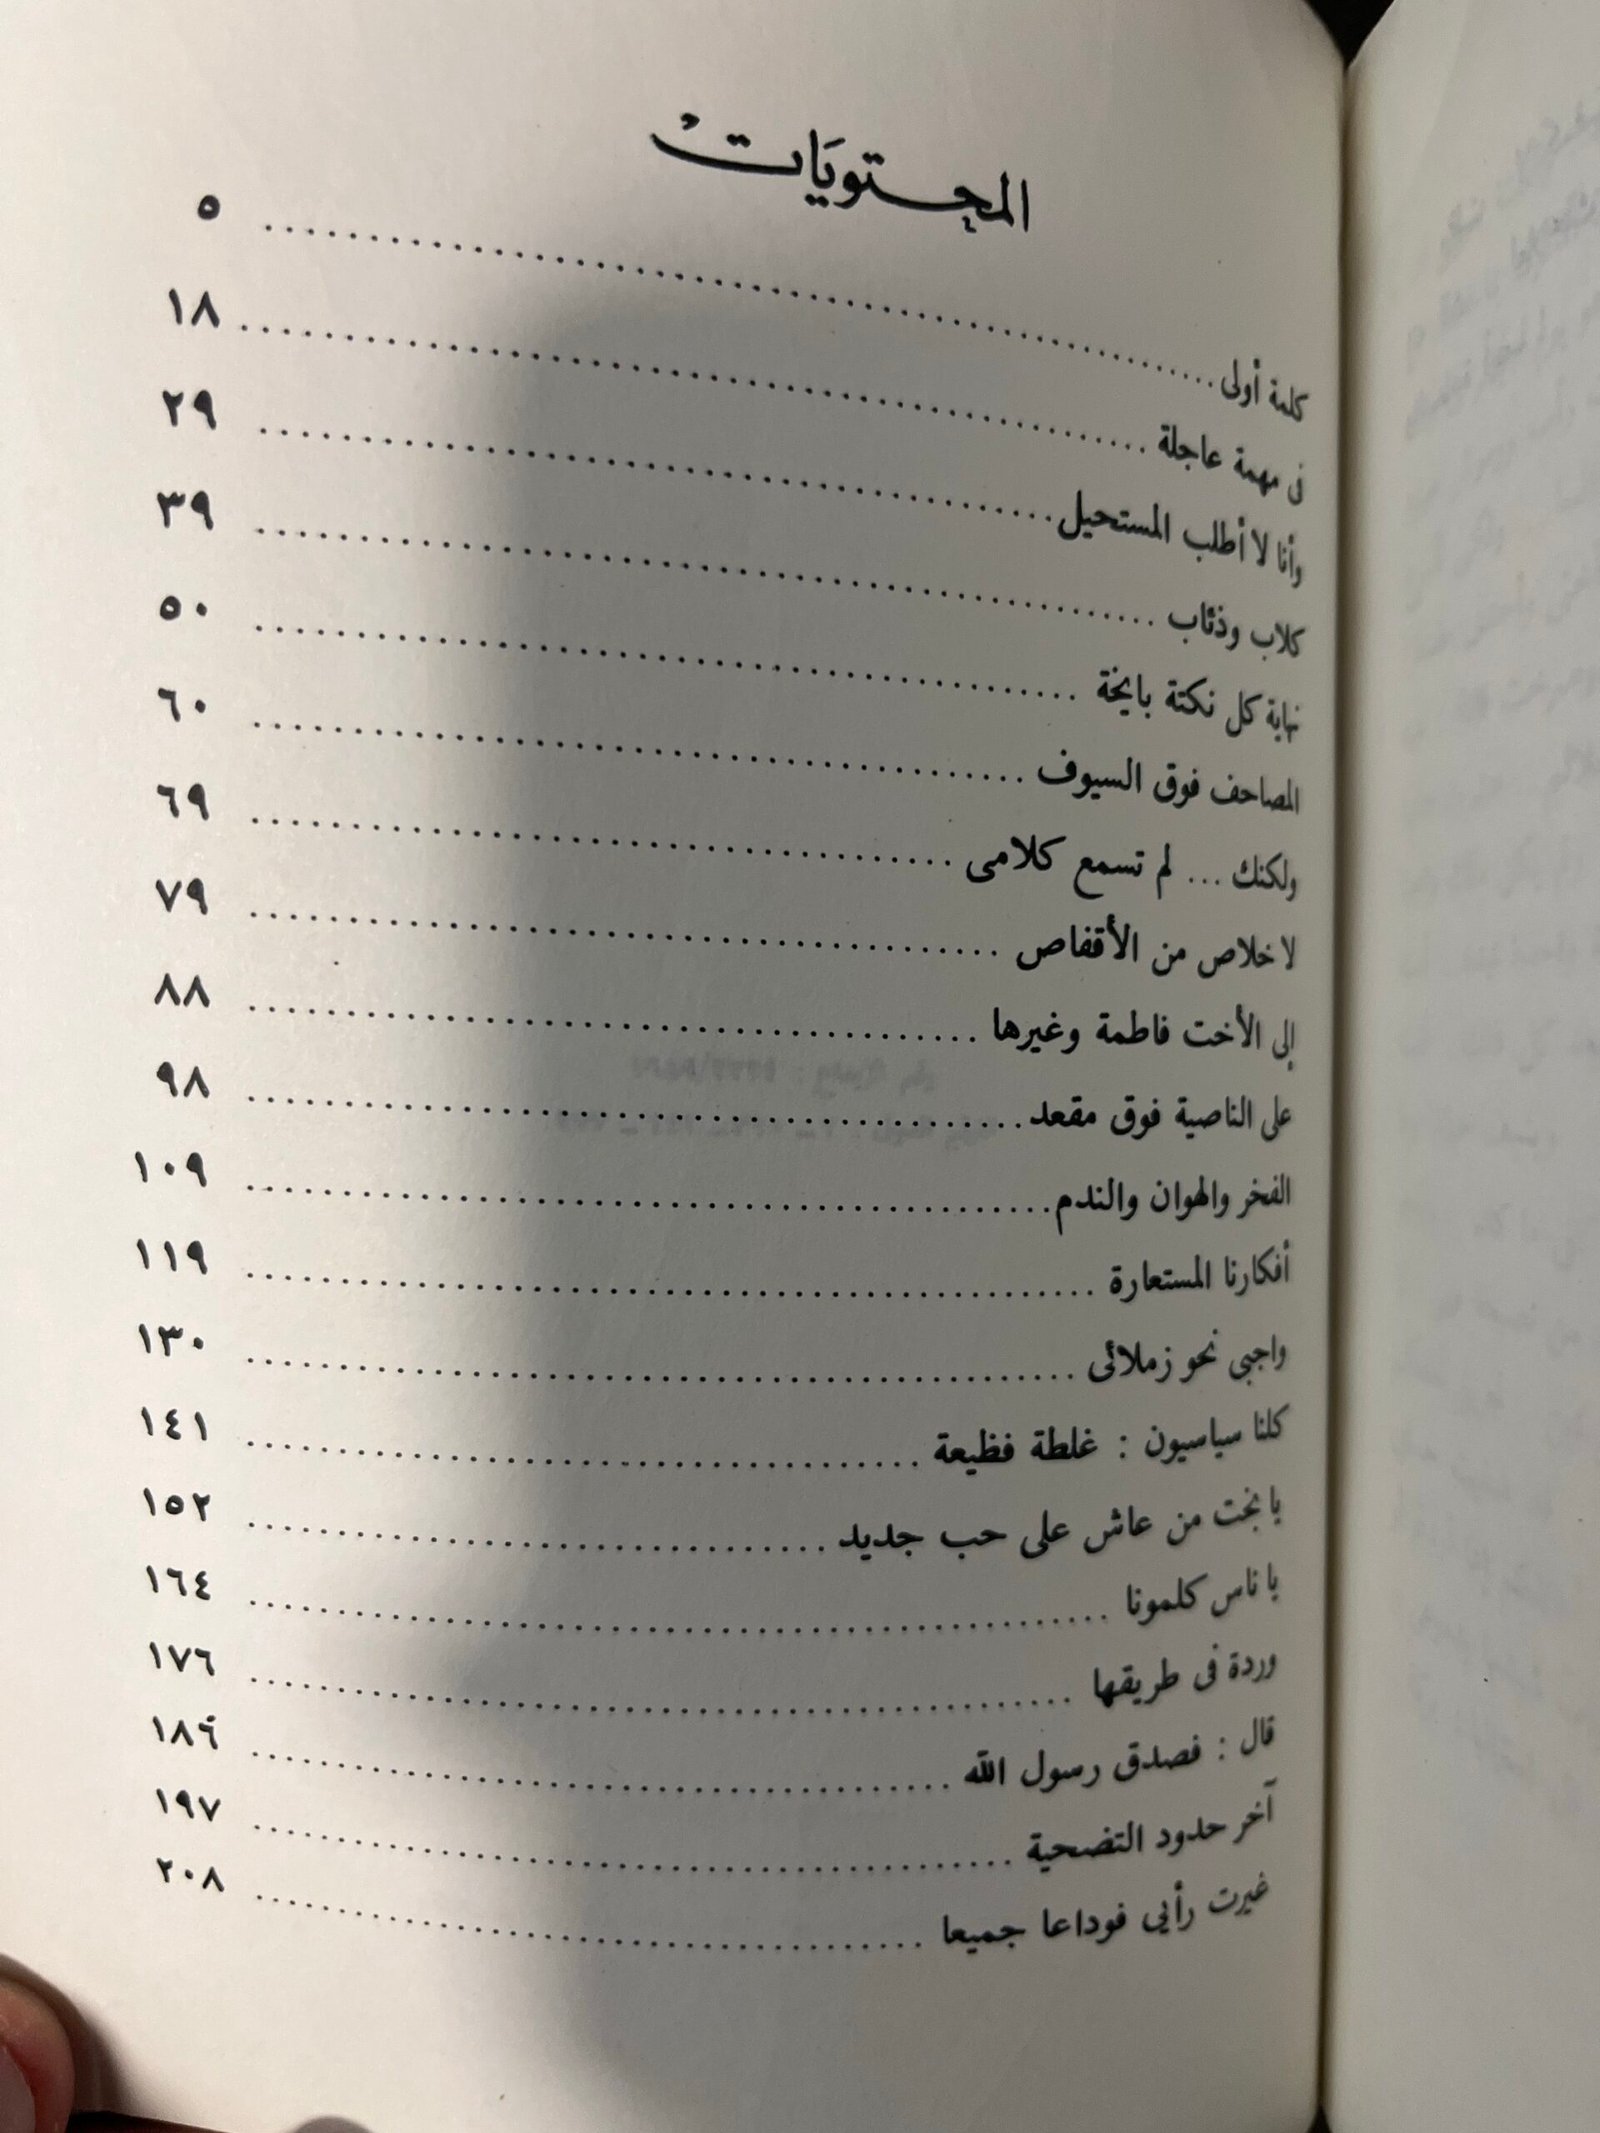 المحتويَات
كلمة أولى ........ ٥
فى مهمة عاجلة ........ ١٨
وأنا لا أطلب المستحيل ........ ٢٩
كلاب وذئاب ........ ٣٩
نهاية كل نكتة بايخة ........ ٥٠
المصاحف فوق السيوف ........ ٦٠
ولكنك ... لم تسمع كلامى ........ ٦٩
لا خلاص من الأقفاص ........ ٧٩
إلى الأخت فاطمة وغيرها ........ ٨٨
على الناصية فوق مقعد ........ ٩٨
الفخر والهوان والندم ........ ١٠٩
أفكارنا المستعارة ........ ١١٩
واجبى نحو زملائى ........ ١٣٠
كلنا سياسيون : غلطة فظيعة ........ ١٤١
يا بخت من عاش على حب جديد ........ ١٥٢
يا ناس كلمونا ........ ١٦٤
وردة فى طريقها ........ ١٧٦
قال : فصدق رسول الله ........ ١٨٦
آخر حدود التضحية ........ ١٩٧
غيرت رأيى فوداعا جميعا ........ ٢٠٨